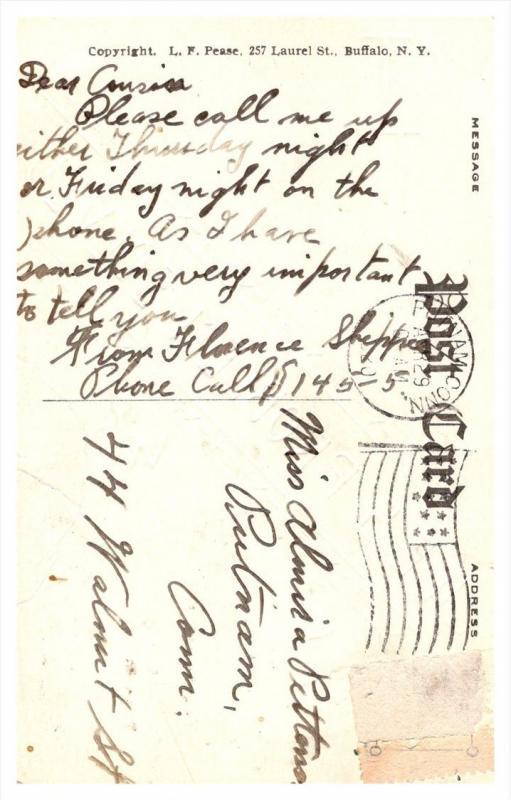 Copyright. L. F. Pease, 257 Laurel St., Buffalo, N. Y.
Dear Cousin
Please call me up
either Thursday night
or Friday night on the
phone. As I have
something very important
to tell you
From Florence Shippee
Phone Call 145-5
MESSAGE
Post Card
PUTNAM CONN.
ADDRESS
Miss Almira
Putnam,
Conn.
44 Walnut St